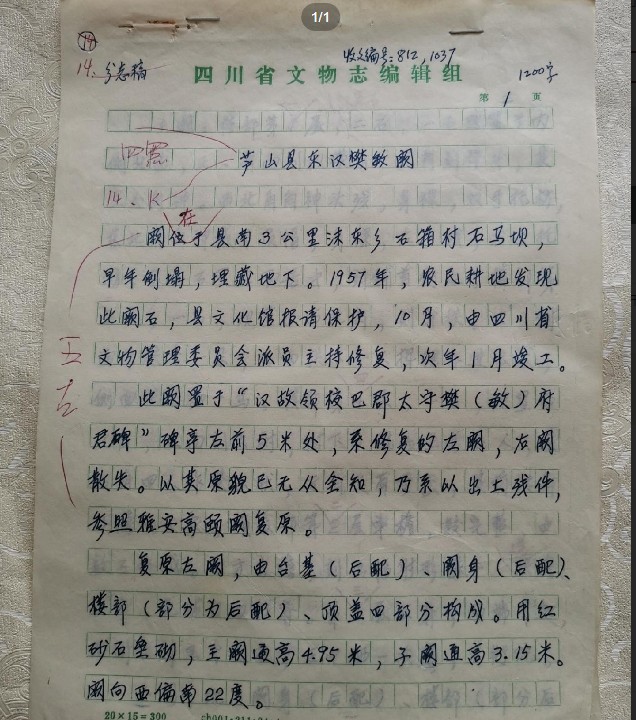 1/1
18
14、分志稿
收文编号：812，1037
四川省文物志编辑组
1200字
第 1 页
芦山县东汉樊敏阙
14、K
在
阙位于县南3公里沫东乡石箱村石马坝，
早年倒塌，埋藏地下。1957年，农民耕地发现
此阙石，县文化馆报请保护，10月，由四川省
文物管理委员会派员主持修复，次年1月竣工。
此阙置于“汉故领校巴郡太守樊（敏）府
君碑”碑亭左前5米处，系修复的左阙，右阙
散失。以其原貌已无从全知，乃系以出土残件，
参照雅安高颐阙复原。
复原左阙，由台基（后配）、阙身（后配）、
楼部（部分为后配）、顶盖四部分构成。用红
砂石垒砌，主阙通高4.95米，子阙通高3.15米。
阙向西偏南22度。
20×15=300